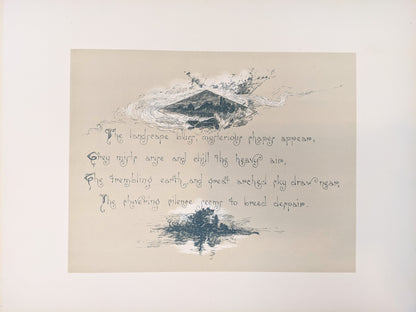 The landscape blurs, mysterious shapes appear,
Grey mists arise and chill the heavy air,
The trembling earth and great arched sky draw near,
The shivering silence seems to breed despair.